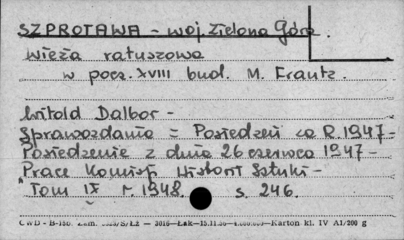 SZPROTAWA - woj. Zielona Góra.
wieża ratuszowa
w pocz. XVIII bud. M. Frantz.
Witold Dalbor -
Sprawozdania z Posiedzeń za R. 1947 -
Posiedzenie z dnia 26 czerwca 1947 -
Prace Komisji Historii Sztuki -
Tom IX r. 1948. s. 246.
CWD - B-150. Zam. Łódź — 3016 — Karton kl. IV A1/200 g